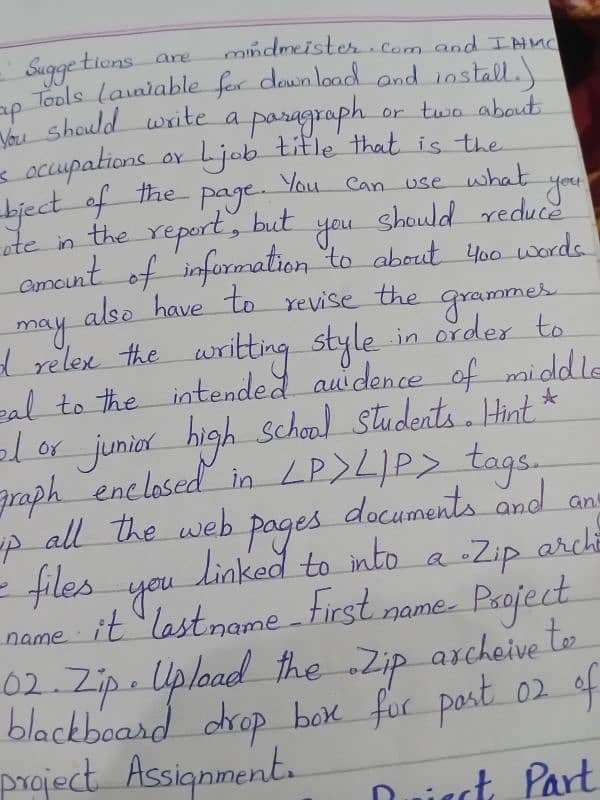 Suggetions are mindmeister.com and IHMC
ap Tools (avaiable for download and install.)
You should write a paragraph or two about
s occupations or Ljob title that is the
bject of the page. You can use what you
ote in the report, but you should reduce
amount of information to about 400 words
may also have to revise the grammer
d relex the writting style in order to
eal to the intended auidence of middle
ol or junior high school students. Hint*
graph enclosed in <P><|P> tags.
ip all the web pages documents and any
e files you linked to into a .Zip archi
name it lastname_First name-Project
02.Zip. Upload the .Zip archeive to
blackboard drop box for part 02 of
project Assignment.
Project Part